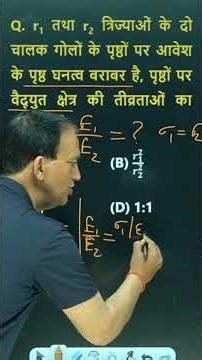 Q. r₁ तथा r₂ त्रिज्याओं के दो
चालक गोलों के पृष्ठों पर आवेश
के पृष्ठ घनत्व बराबर है, पृष्ठों पर
वैद्युत क्षेत्र की तीव्रताओं का
E₁/E₂ = ? σ₁ =
(B)
(D) 1:1
E₁/E₂ = σ/ε